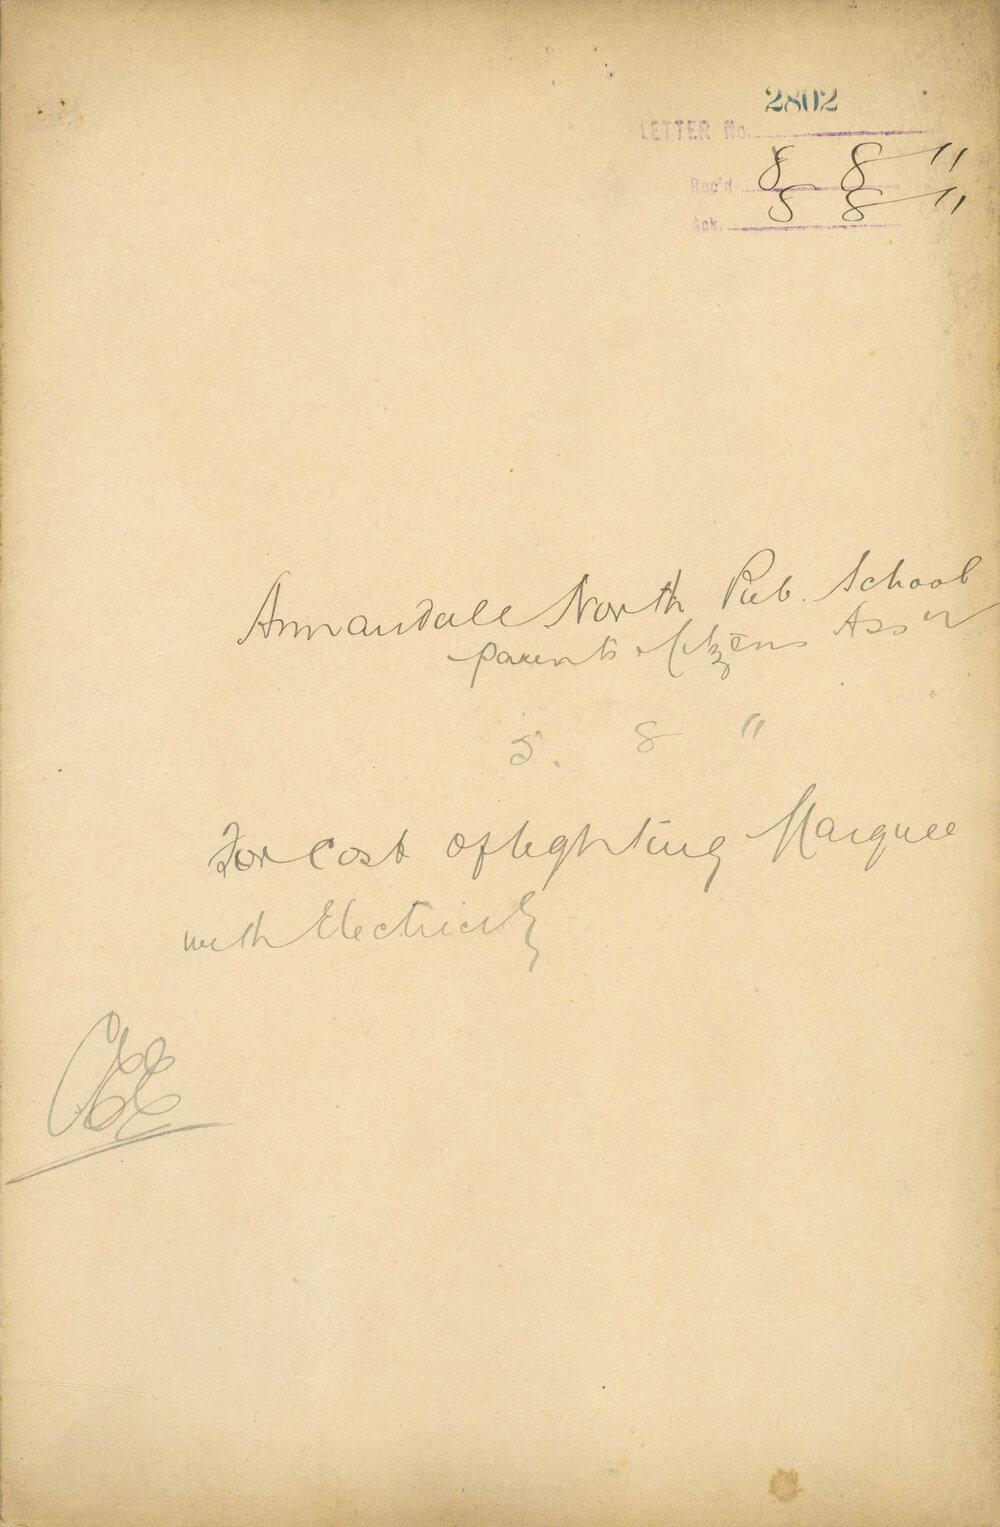 2802
LETTER No.
Rec'd 8 8 11
Ack. 8 8 11
Annandale North Pub. School
Parents & Citizens Ass'n
5. 8 11
For Cost of lighting Marquee
with Electricity